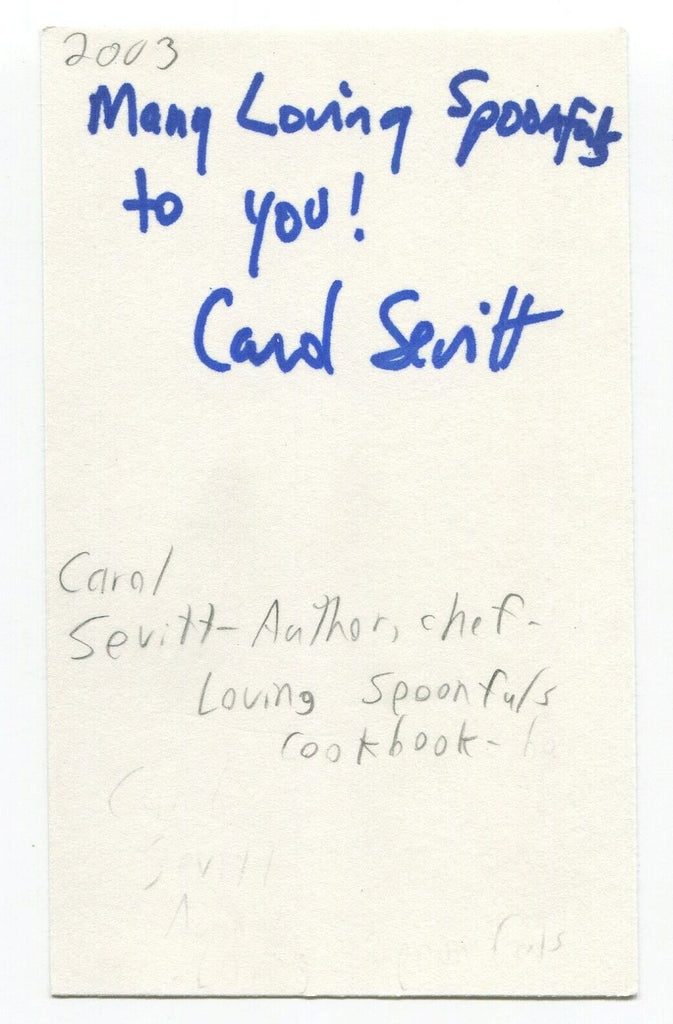 2003
Many Loving Spoonfuls
to you!
Carol Sevitt
Carol
Sevitt- Author, chef-
Loving Spoonfuls
cookbook-
Sevitt